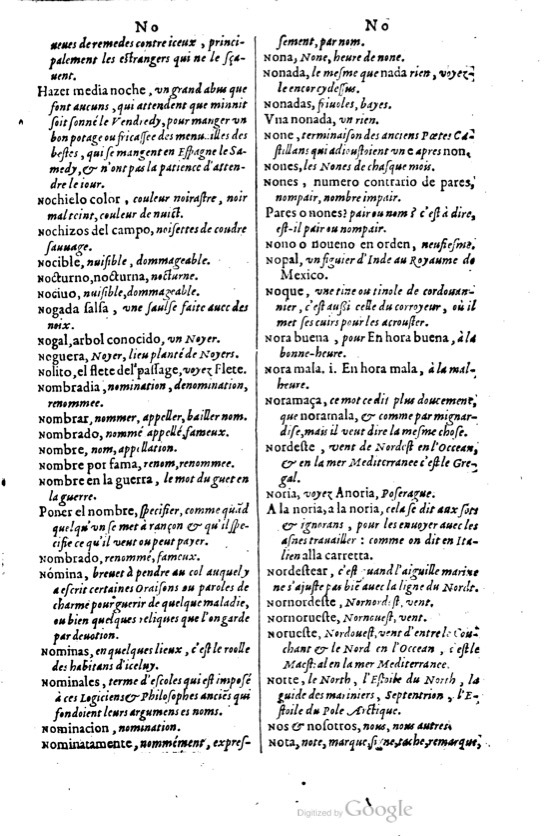 No
ueues de remedes contre iceux, princi-
palement les estrangers qui ne le sça-
uent.
Hazer media noche, vn grand abus que
font aucuns, qui attendent que minuit
soit sonné le Vendredy, pour manger vn
bon potage ou fricassee des menuailles des
bestes, qui se mangent en Espagne le Sa-
medy, & n'ont pas la patience d'atten-
dre le iour.
Nochielo color, couleur noirastre, noir
mal teint, couleur de nuict.
Nochizos del campo, noisettes de coudre
sauuage.
Nocible, nuisible, dommageable.
Nocturno, nocturna, nocturne.
Nociuo, nuisible, dommageable.
Nogada salsa, vne saulse faite auec des
noix.
Nogal, arbol conocido, vn Noyer.
Noguera, Noyer, lieu planté de Noyers.
Nolito, el flete del passage, voyez Flete.
Nombradia, nomination, denomination,
renommee.
Nombrar, nommer, appeller, bailler nom.
Nombrado, nommé appellé, fameux.
Nombre, nom, appellation.
Nombre por fama, renom, renommee.
Nombre en la guerra, le mot du guet en
la guerre.
Poner el nombre, specifier, comme quãd
quelqu'vn se met à rançon & qu'il spe-
cifie ce qu'il veut ou peut payer.
Nombrado, renommé, fameux.
Nómina, breuet à pendre au col auquel y
a escrit certaines Oraisons ou paroles de
charme pour guerir de quelque maladie,
ou bien quelques reliques que l'on garde
par deuotion.
Nominas, en quelques lieux, c'est le roolle
des habitans d'iceluy.
Nominales, terme d'escoles qui est imposé
à ces Logiciens & Philosophes anciẽs qui
fondoient leurs argumens es noms.
Nominacion, nomination.
Nominatamente, nommément, expres-
No
sement, par nom.
Nona, None, heure de none.
Nonada, le mesme que nada rien, voyez
le encor cy dessus.
Nonadas, friuoles, bayes.
Vna nonada, vn rien.
None, terminaison des anciens Poetes Ca-
stillans qui adioustoient vn e apres non,
Nones, les Nones de chasque mois.
Nones, numero contrario de pares,
nompair, nombre impair.
Pares o nones? pair ou nom? c'est à dire,
est-il pair ou nompair.
Nono o noueno en orden, neufiesme.
Nopal, vn figuier d'Inde au Royaume de
Mexico.
Noque, vne tine ou tinole de cordouan-
nier, c'est aussi celle du corroyeur, où il
met ses cuirs pour les acrouster.
Nora buena, pour En hora buena, à la
bonne-heure.
Nora mala. i. En hora mala, à la mal-
heure.
Noramaça, ce mot ce dit plus doucement,
que noramala, & comme par mignar-
dise, mais il veut dire la mesme chose.
Nordeste, vent de Nordest en l'Ocean,
& en la mer Mediterranee c'est le Gre-
gal.
Noria, voyez Anoria, Poserague.
A la noria, a la noria, cela se dit aux sots
& ignorans, pour les enuoyer auec les
asnes trauailler: comme on dit en Ita-
lien alla carretta.
Nordestear, c'est quand l'aiguille marine
ne s'ajuste pas biẽ auec la ligne du Nordt.
Nornordeste, Nornordest, vent.
Nornorueste, Nornouest, vent.
Norueste, Nordouest, vent d'entre le Cou-
chant & le Nord en l'Ocean, c'est le
Maestral en la mer Mediterranee.
Norte, le North, l'Estoile du North, la
guide des mariniers, Septentrion, l'E-
stoile du Pole Arctique.
Nos & nosotros, nous, nous autres.
Nota, note, marque, signe, tache, remarque,
Digitized by Google